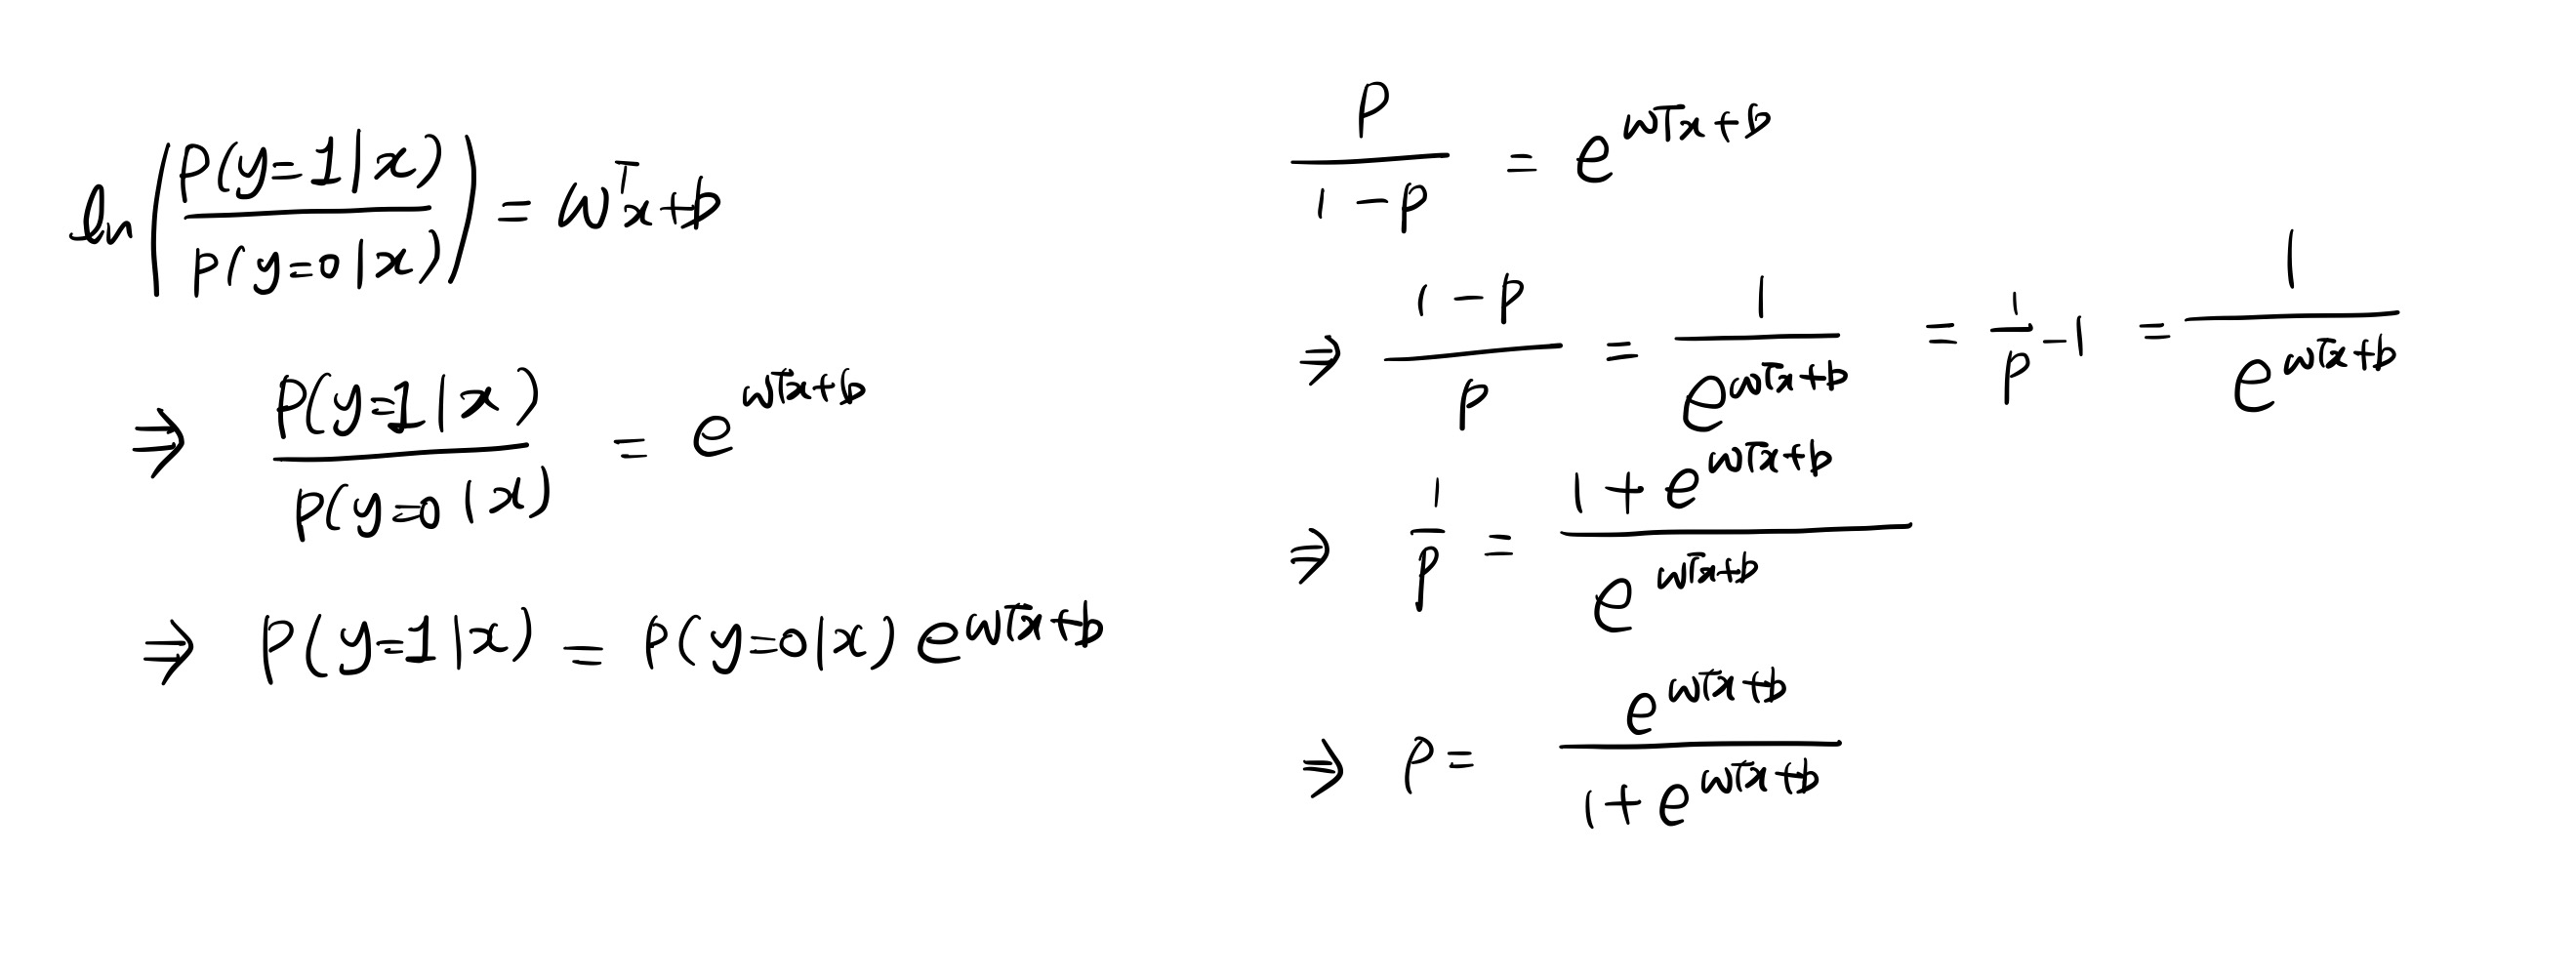 ln(P(y=1|x) / P(y=0|x)) = wᵀx+b
⇒ P(y=1|x) / P(y=0|x) = e^(wᵀx+b)
⇒ P(y=1|x) = P(y=0|x) e^(wᵀx+b)
P / (1-P) = e^(wᵀx+b)
⇒ (1-P) / P = 1 / e^(wᵀx+b) = 1/P - 1 = 1 / e^(wᵀx+b)
⇒ 1/P = (1 + e^(wᵀx+b)) / e^(wᵀx+b)
⇒ P = e^(wᵀx+b) / (1 + e^(wᵀx+b))